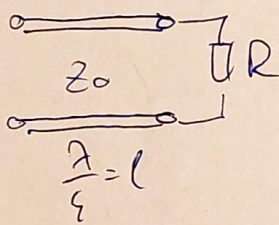 Z₀
R
λ/4 = l